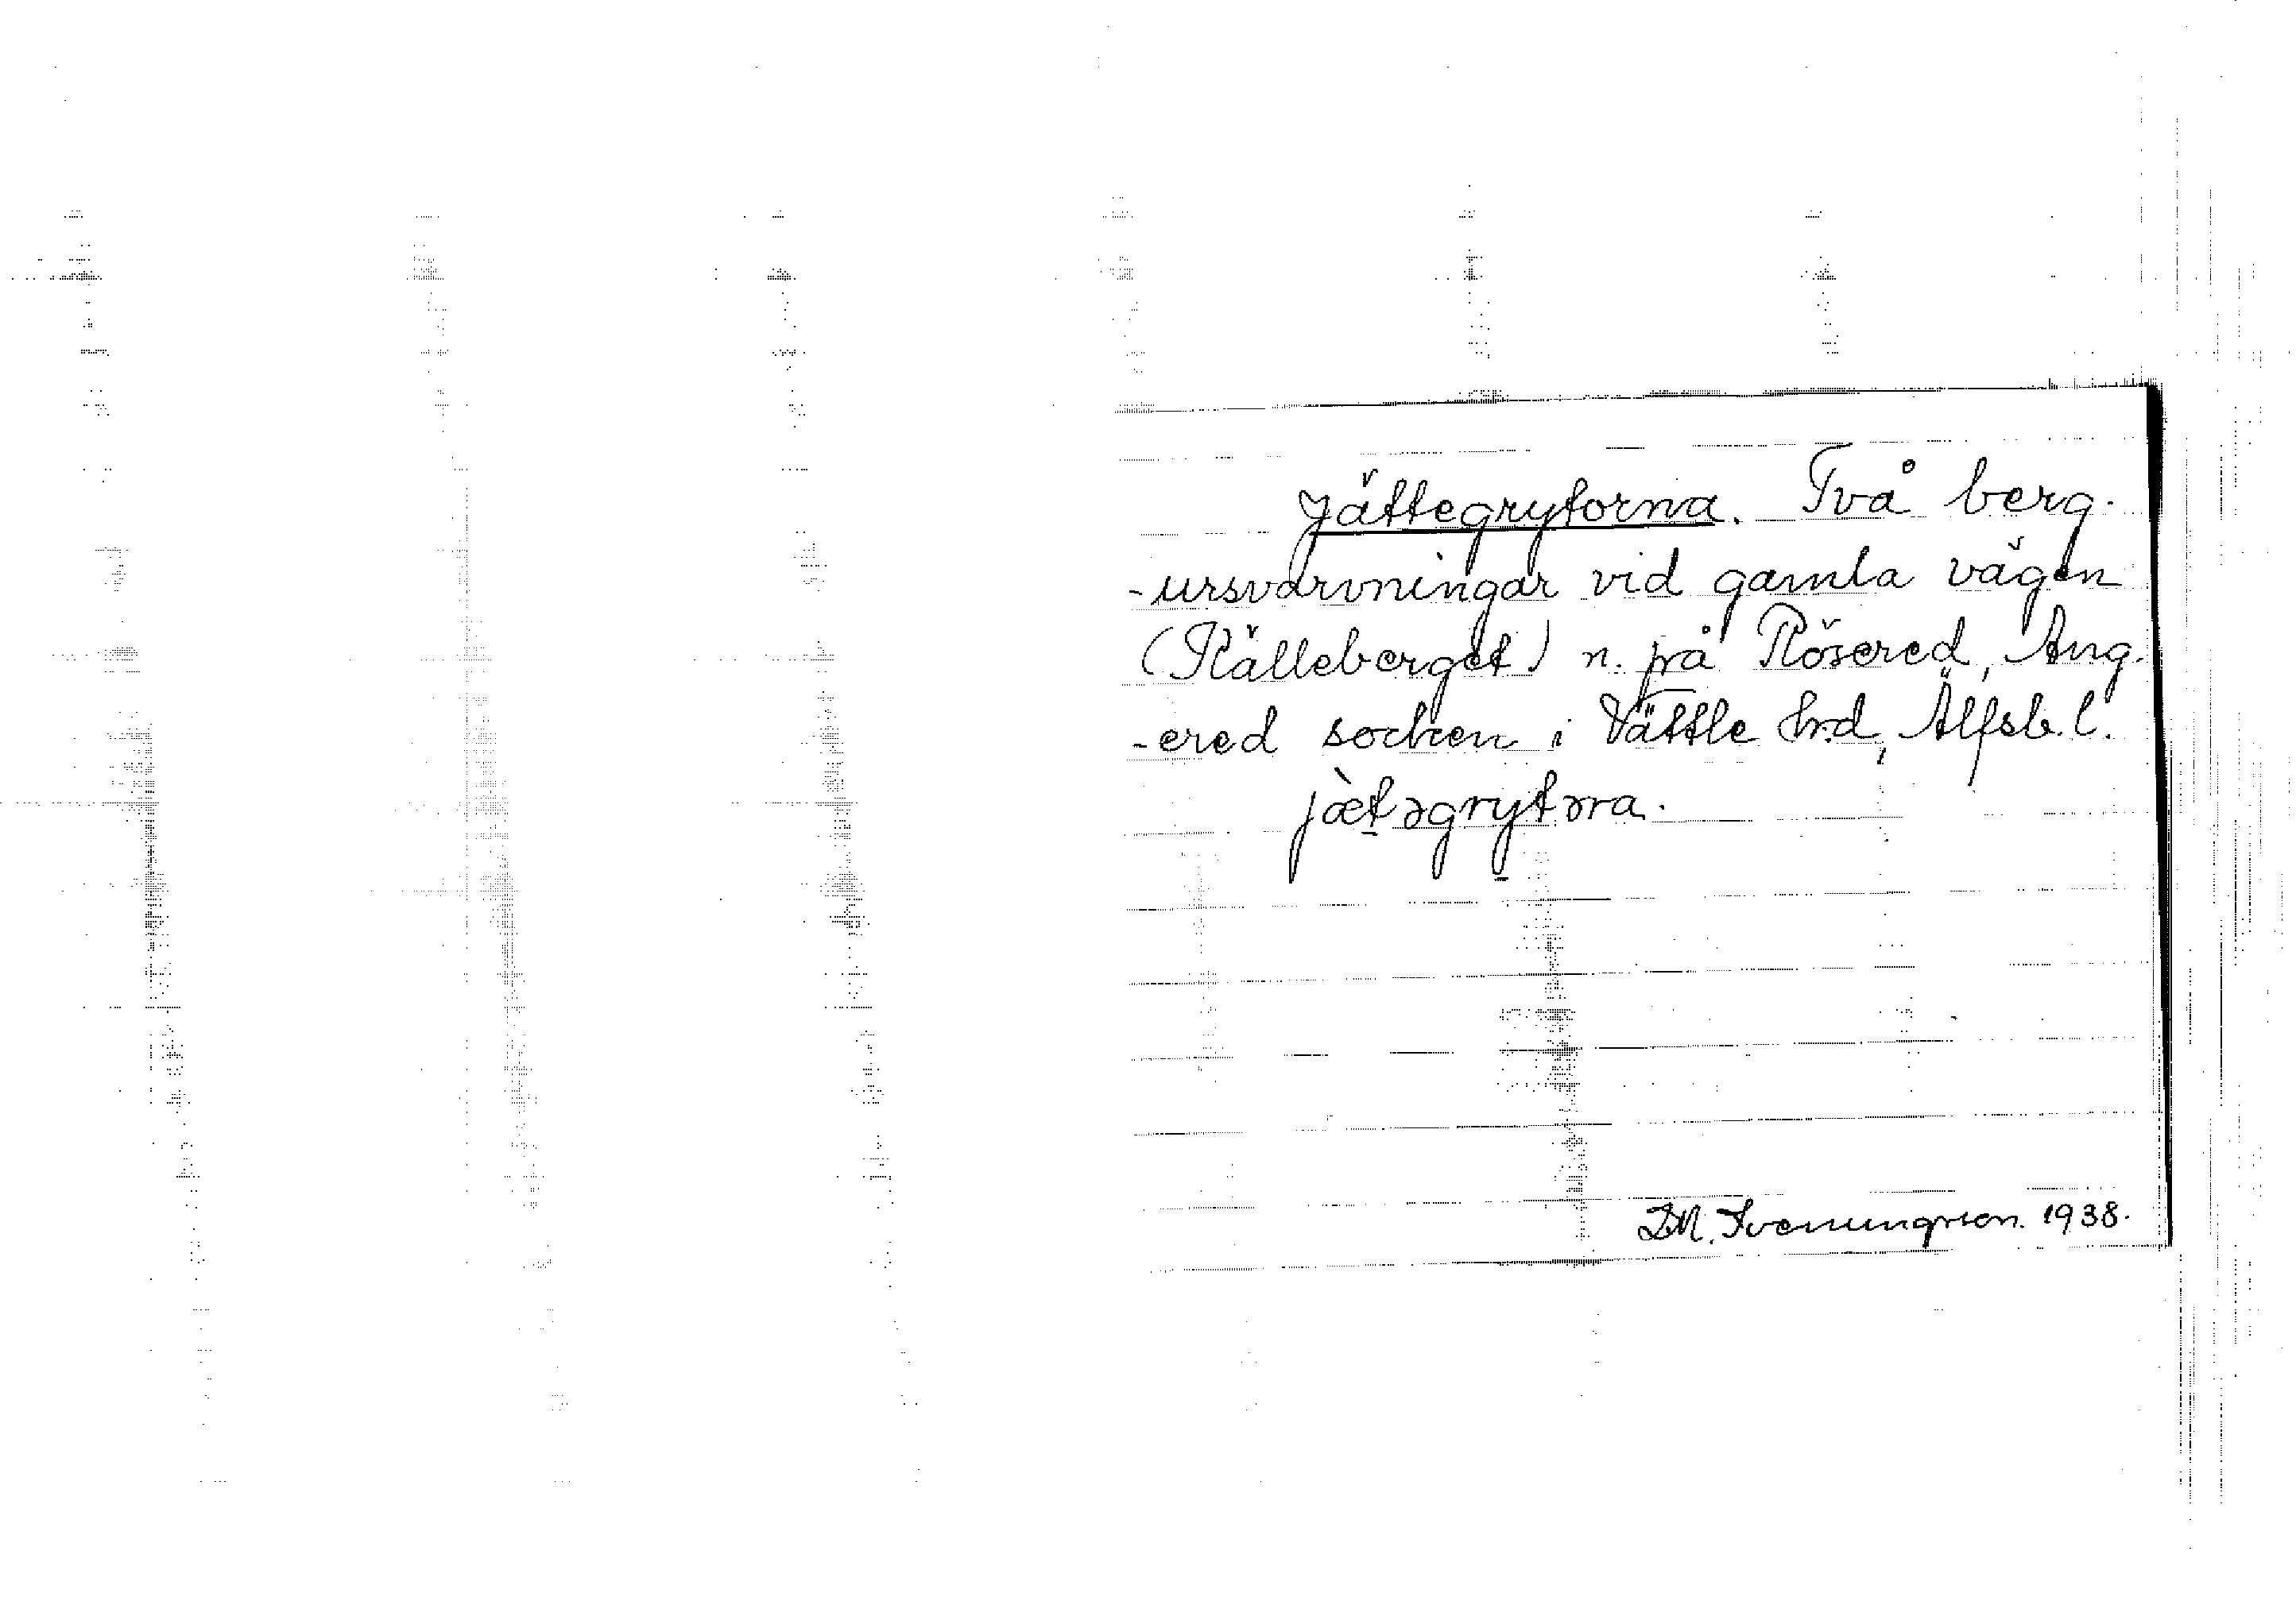 Jättegrytorna. Två berg-
-ursvarvningar vid gamla vägen
(Rälleberget) n. på Rösered, Ang-
-ered socken i Vättle hrd, Älfsb. l.
jæ̀t̠əgryt̠əra.
D.M. Svenningson. 1938.